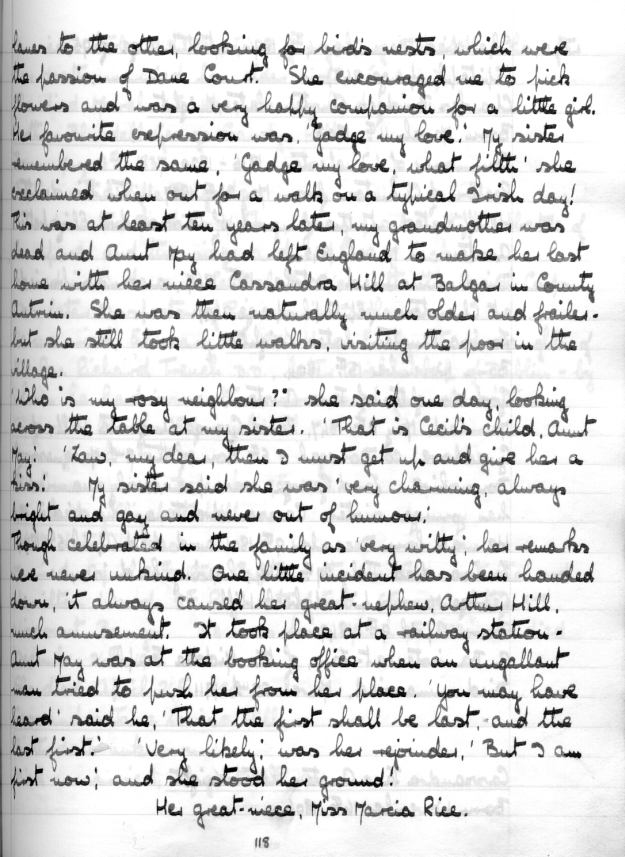 lanes to the other, looking for bird's nests which were
the passion of Dane Court. She encouraged me to pick
flowers and was a very happy companion for a little girl.
Her favourite expression was, 'Gadge my love.' My sister
remembered the same, 'Gadge my love, what filth' she
exclaimed when out for a walk on a typical Irish day!
This was at least ten years later, my grandmother was
dead and Aunt May had left England to make her last
home with her niece Cassandra Hill at Balgar in County
Antrim. She was then naturally much older and frailer -
but she still took little walks, visiting the poor in the
village.
'Who is my rosy neighbour?' she said one day, looking
across the table at my sister. 'That is Cecil's child, Aunt
May.' 'Law, my dear, then I must get up and give her a
kiss.' My sister said she was 'very charming, always
bright and gay and never out of humour.'
Though celebrated in the family as 'very witty', her remarks
were never unkind. One little incident has been handed
down, it always caused her great-nephew, Arthur Hill,
much amusement. It took place at a railway station -
Aunt May was at the booking office when an ungallant
man tried to push her from her place. 'You may have
heard' said he, 'That the first shall be last, and the
last first.' 'Very likely', was her rejoinder, 'But I am
first now', and she stood her ground!
Her great-niece, Miss Marcia Rice.
118